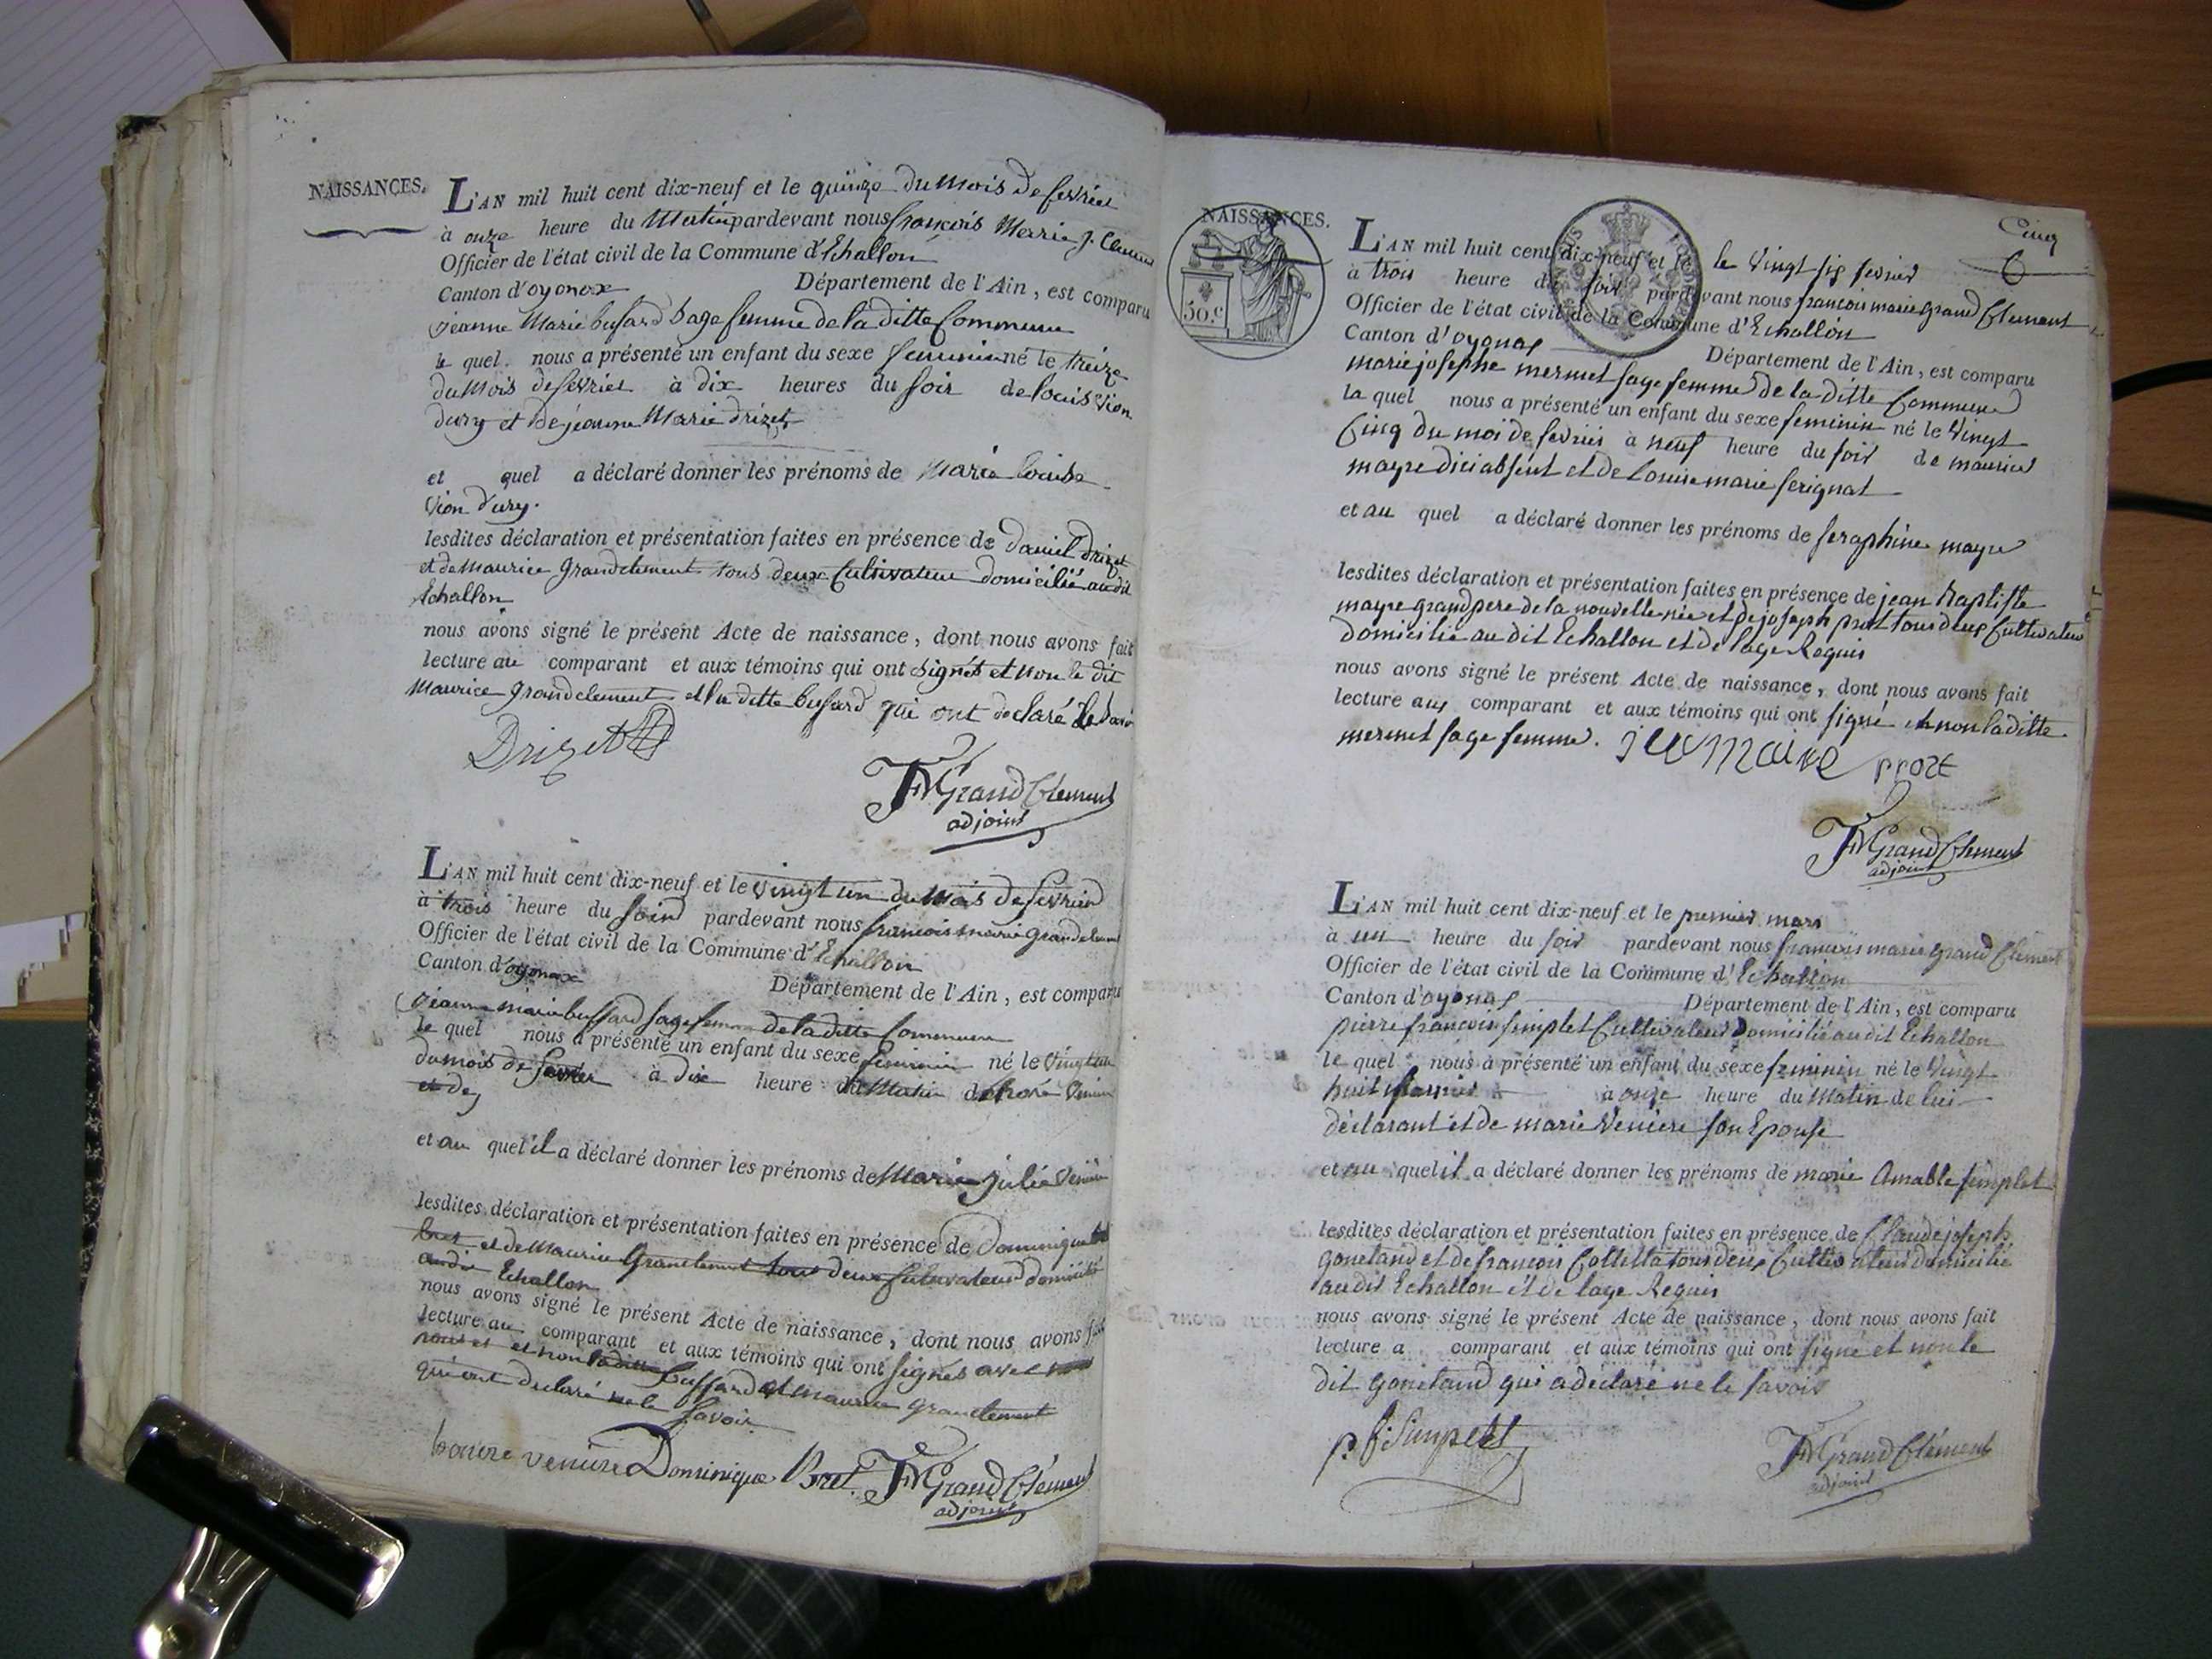 NAISSANCES.
L'AN mil huit cent dix-neuf et le quinze du Mois de fevrier
à onze heure du Matin pardevant nous françois Marie g. Clement
Officier de l'état civil de la Commune d'Echallon
Canton d'oyonax Département de l'Ain, est comparu
jeanne Marie bussard sage femme de la ditte Commune
le quel nous a présenté un enfant du sexe feminin né le treize
du Mois de fevrier à dix heures du soir de louis vion
dury et de jeanne Marie drizet
et quel a déclaré donner les prénoms de Marie louise
Vion dury.
lesdites déclaration et présentation faites en présence de daniel drizet
et de maurice grandclement tous deux Cultivateur domicilié audit
Echallon
nous avons signé le présent Acte de naissance, dont nous avons fait
lecture au comparant et aux témoins qui ont signés et non le dit
Maurice grandclement et la ditte bussard qui ont declaré
Drizet
FM Grand Clément
adjoint
L'AN mil huit cent dix-neuf et le vingt un du Mois de fevrier
à trois heure du soir pardevant nous francois marie grandclement
Officier de l'état civil de la Commune d'Echallon
Canton d'oyonax Département de l'Ain, est comparu
jeanne marie bussard sage femme de la ditte Commune
le quel nous a présenté un enfant du sexe feminin né le vingt un
du mois de fevrier à dix heure du Matin
et de
et au quel il a déclaré donner les prénoms de Marie julie
lesdites déclaration et présentation faites en présence de Dominique
bret et de Maurice Grandclement tous deux Cultivateurs domicilié
audit Echallon
nous avons signé le présent Acte de naissance, dont nous avons fait
lecture au comparant et aux témoins qui ont signés avec nous
et non la ditte bussard et maurice grandclement
qui ont declaré ne le savoir
venière Dominique Bret. FM Grand Clément
adjoint
Cinq
6
NAISSANCES.
50.c
L'AN mil huit cent dix-neuf et le le vingt six fevrier
à trois heure du soir pardevant nous francois marie grand Clement
Officier de l'état civil de la Commune d'Echallon
Canton d'oyonax Département de l'Ain, est comparu
marie josephe mermet sage femme de la ditte Commune
la quel nous a présenté un enfant du sexe feminin né le vingt
Cinq du moi de fevrier à neuf heure du soir de maurice
mayre dici absent et de Louise marie serignat
et au quel a déclaré donner les prénoms de seraphine mayre
lesdites déclaration et présentation faites en présence de jean baptiste
mayre grand pere de la nouvelle née et de joseph prost tous deux Cultivateur
domicilié au dit Echallon et de lage Requis
nous avons signé le présent Acte de naissance, dont nous avons fait
lecture aux comparant et aux témoins qui ont signé et non la ditte
mermet sage femme. prost
FM Grand Clement
adjoint
L'AN mil huit cent dix-neuf et le premier mars
à un heure du soir pardevant nous francois marie grand Clément
Officier de l'état civil de la Commune d'Echallon
Canton d'oyonax Département de l'Ain, est comparu
pierre francois simplet Cultivateur domicilié au dit Echallon
le quel nous à présenté un enfant du sexe feminin né le vingt
huit fevrier à onze heure du Matin de lui
déclarant et de marie Veniere son Epouse
et au quel il a déclaré donner les prénoms de marie Amable simplet
lesdites déclaration et présentation faites en présence de Claude joseph
gonetand et de francois Colletta tous deux Cultivateurs domicilié
au dit Echallon et de lage Requis
nous avons signé le présent Acte de naissance, dont nous avons fait
lecture a comparant et aux témoins qui ont signé et non le
dit gonetand qui a déclaré ne le savoir
p. f. Simplet
FM Grand Clément
adjoint